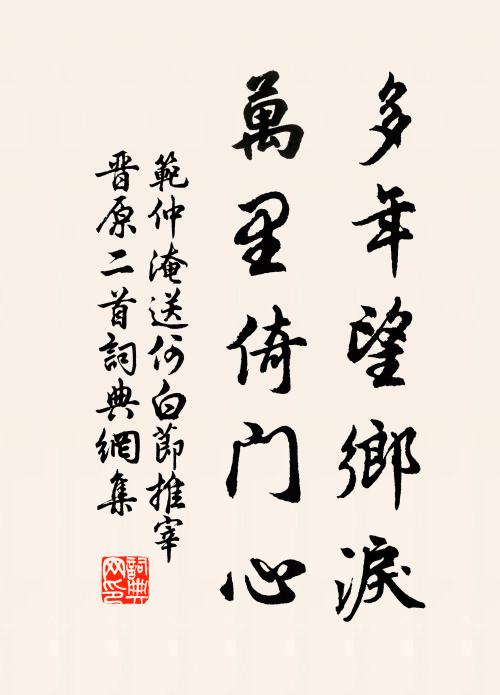 多年望鄉淚
萬里倚门心
範仲淹送何白節推宰
晋原二首詞典網集
詞典
网印